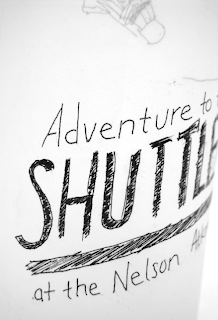 Adventure to
SHUTTLE
at the Nelson